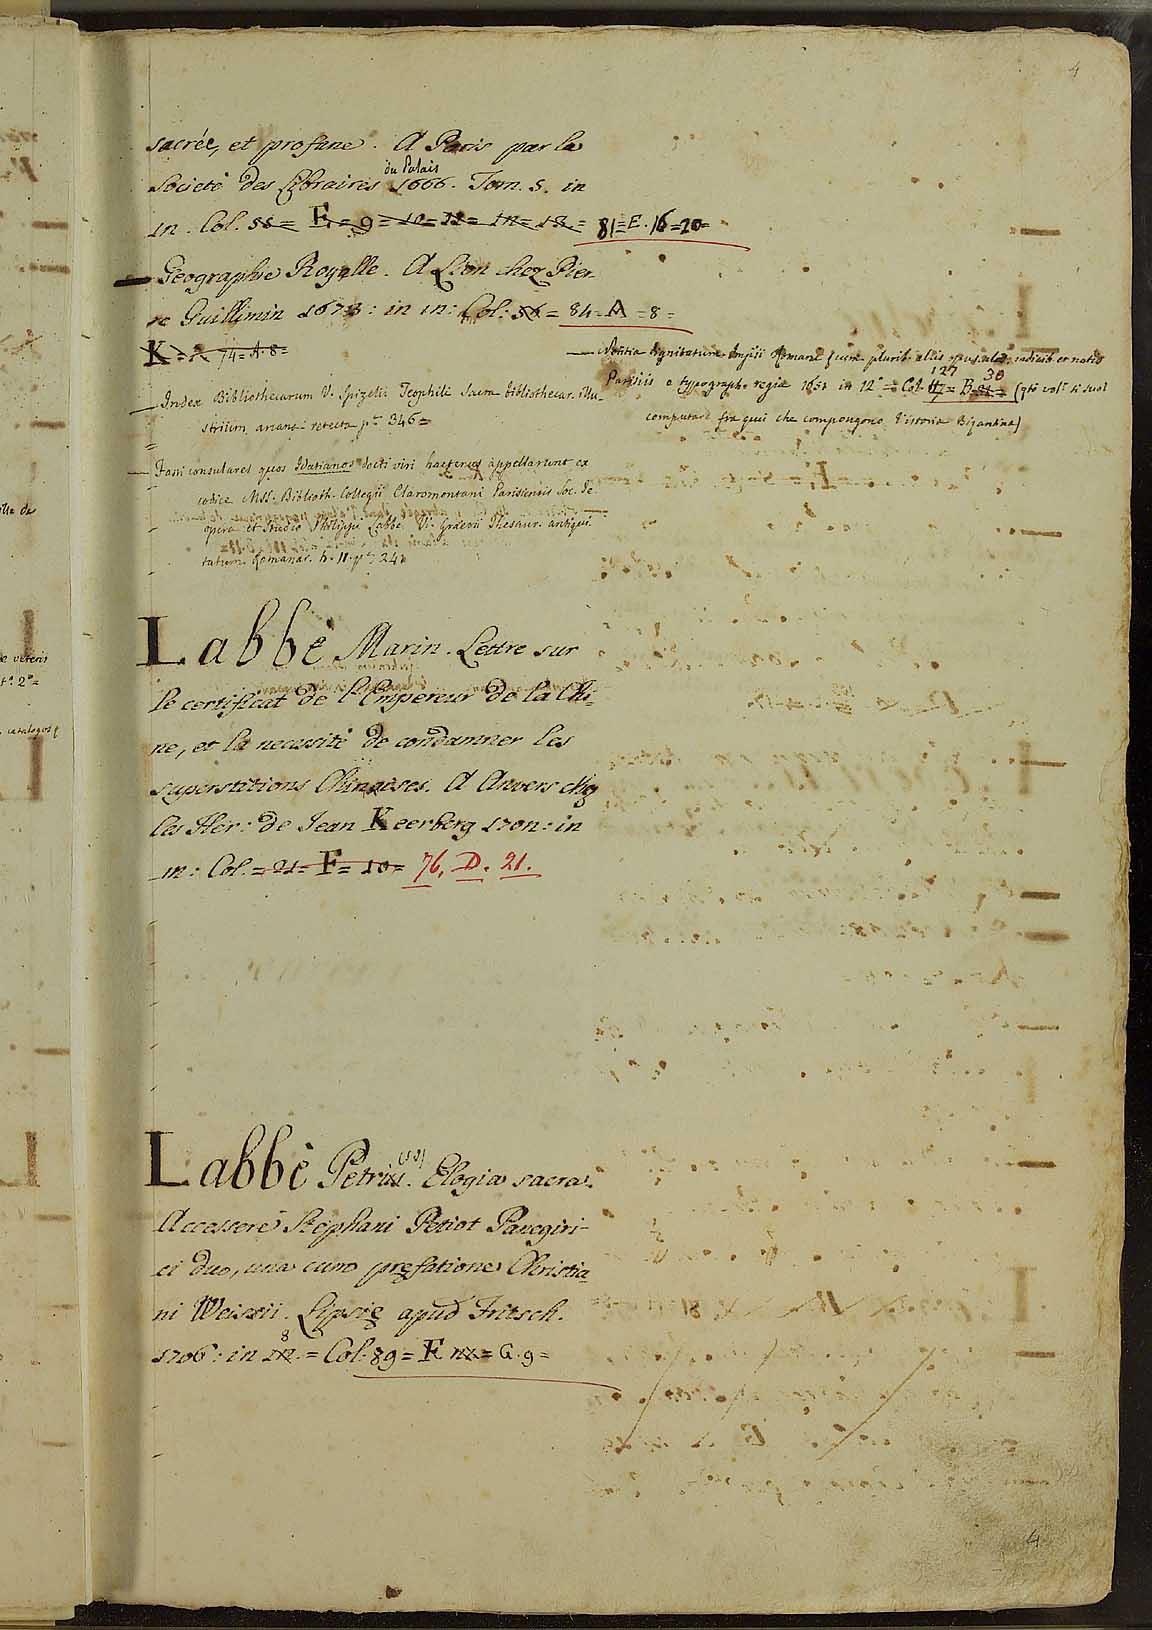 4
sacrée, et profane. A Paris par la
Societè des Libraires du Palais 1666. Tom. 5. in
in. Col. 55= E.=9=10=11=12=13= 81=E.16=20=
Geographie Royalle. A Lion chez Pier-
re Guillimin 1673: in in: Col: 56= 84=A=8=
K= 74=A.8=
Index Bibliothecarum V. Spizelii Teophili Sacra bibliothecar. illu-
strium arcana retecta pa. 346=
Fasti consulares quos Idatianos docti viri hactenus appellarunt ex
codice Mss. Biblioth. Collegii Claromontani Parisiensis Soc. Je.
opera et studio Philippi Labbè. V. Graevii Thesaur. antiqui-
tatum Romanar. to. 11. pa. 241
Notitia dignitatum Imperii Romani cum plurib. aliis opusculis, indicib. et notis
Parisiis e typographo regia 1651 in 12° = Col. 127 = B. 30 = (qto vol. si suol
computare fra quei che compongono l'istoria Bizantina)
Labbè Marin. Lettre sur
le certificat de l'Empereur de la Chi-
ne, et la necessitè de condamner les
superstitions Chinoises. A Anvers chez
les Her: de Jean Keerberg 1701: in
in: Col.=21=F=10= 76, D. 21.
Labbè Petrus. Elogia sacra.
Accessere Stephani Petiot Panegiri-
ci duo, una cum prefatione Christia
ni Weisii. Lipsię apud Fritsch.
1706: in 8. = Col. 89= F. = G. 9=
4